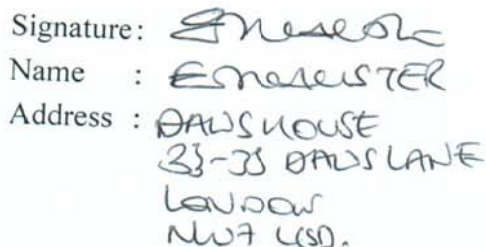 Signature:
Name :
Address : DAWS HOUSE
33-35 DAWS LANE
LONDON
NW7 4SD.